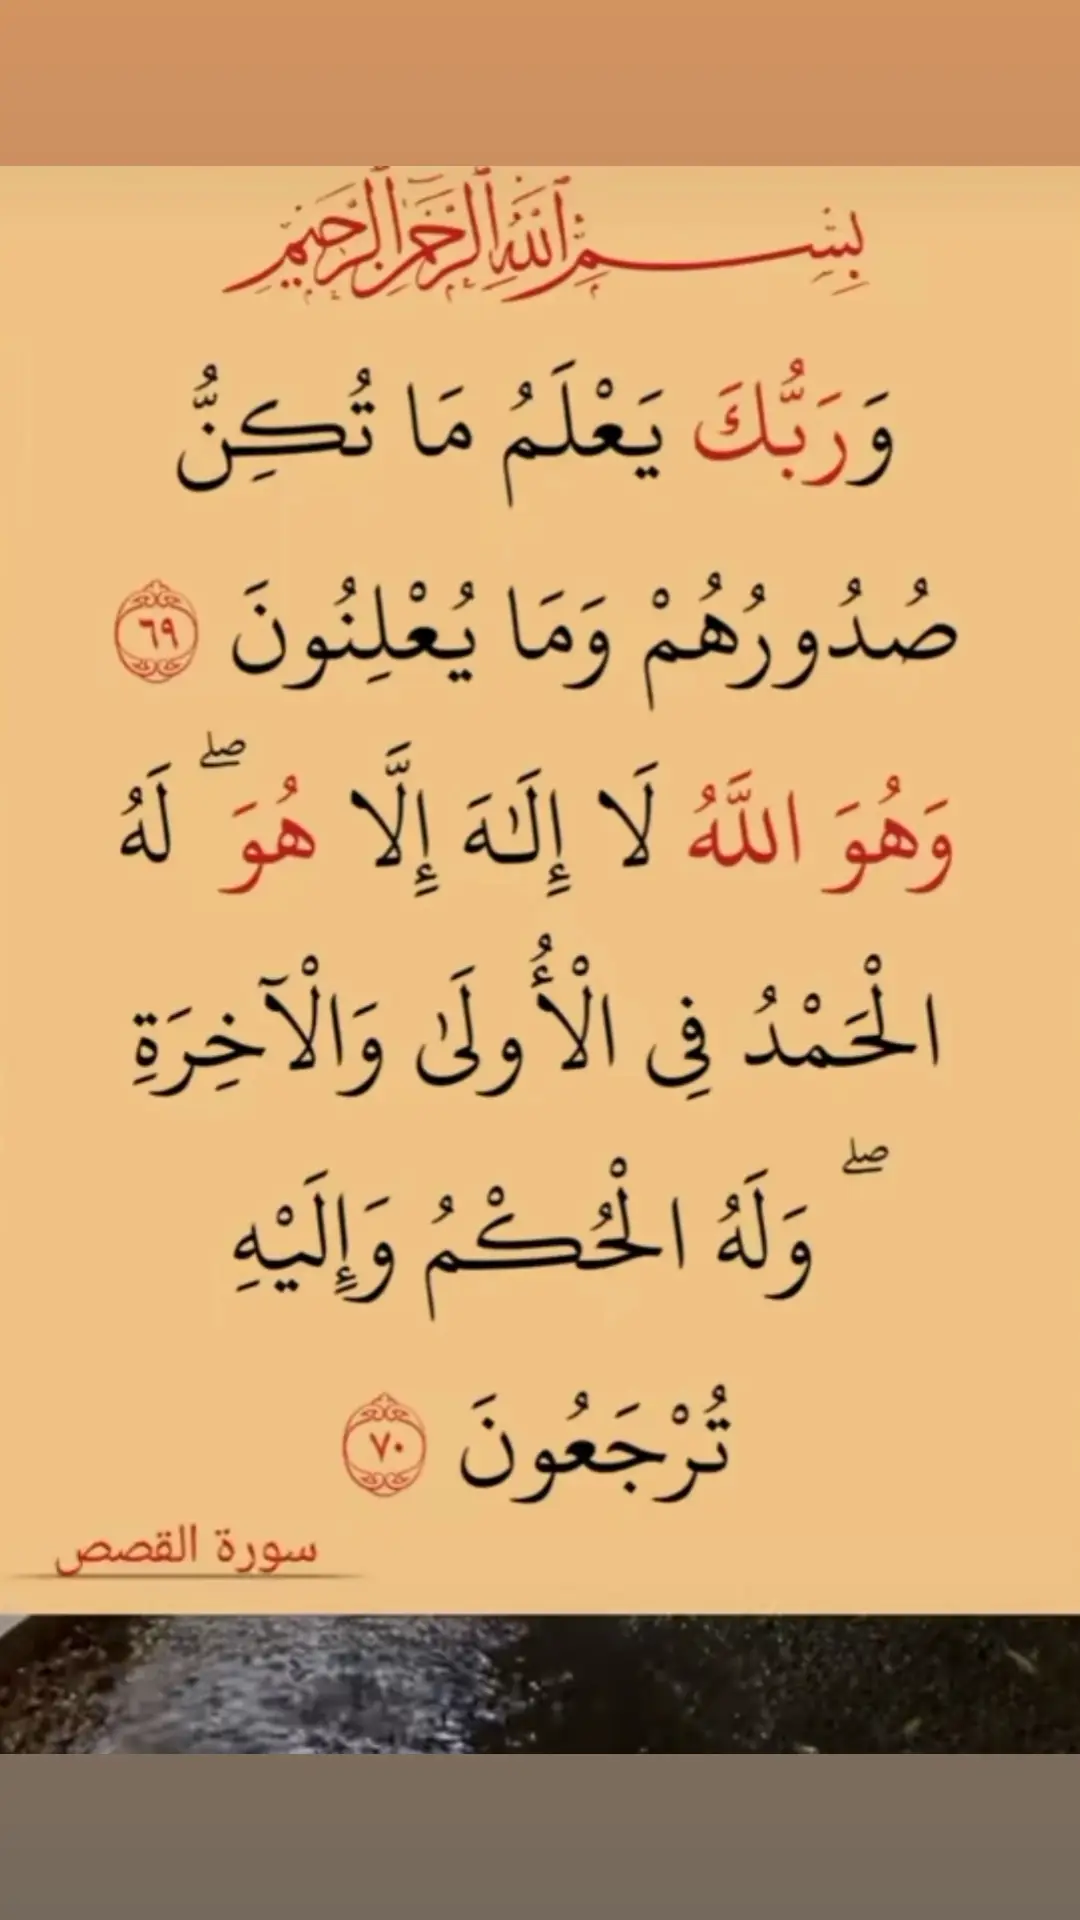 بِسْمِ اللَّهِ الرَّحْمَٰنِ الرَّحِيمِ
وَرَبُّكَ يَعْلَمُ مَا تُكِنُّ
صُدُورُهُمْ وَمَا يُعْلِنُونَ ٦٩
وَهُوَ اللَّهُ لَا إِلَٰهَ إِلَّا هُوَ ۖ لَهُ
الْحَمْدُ فِي الْأُولَىٰ وَالْآخِرَةِ
ۖ وَلَهُ الْحُكْمُ وَإِلَيْهِ
تُرْجَعُونَ ٧٠
سورة القصص